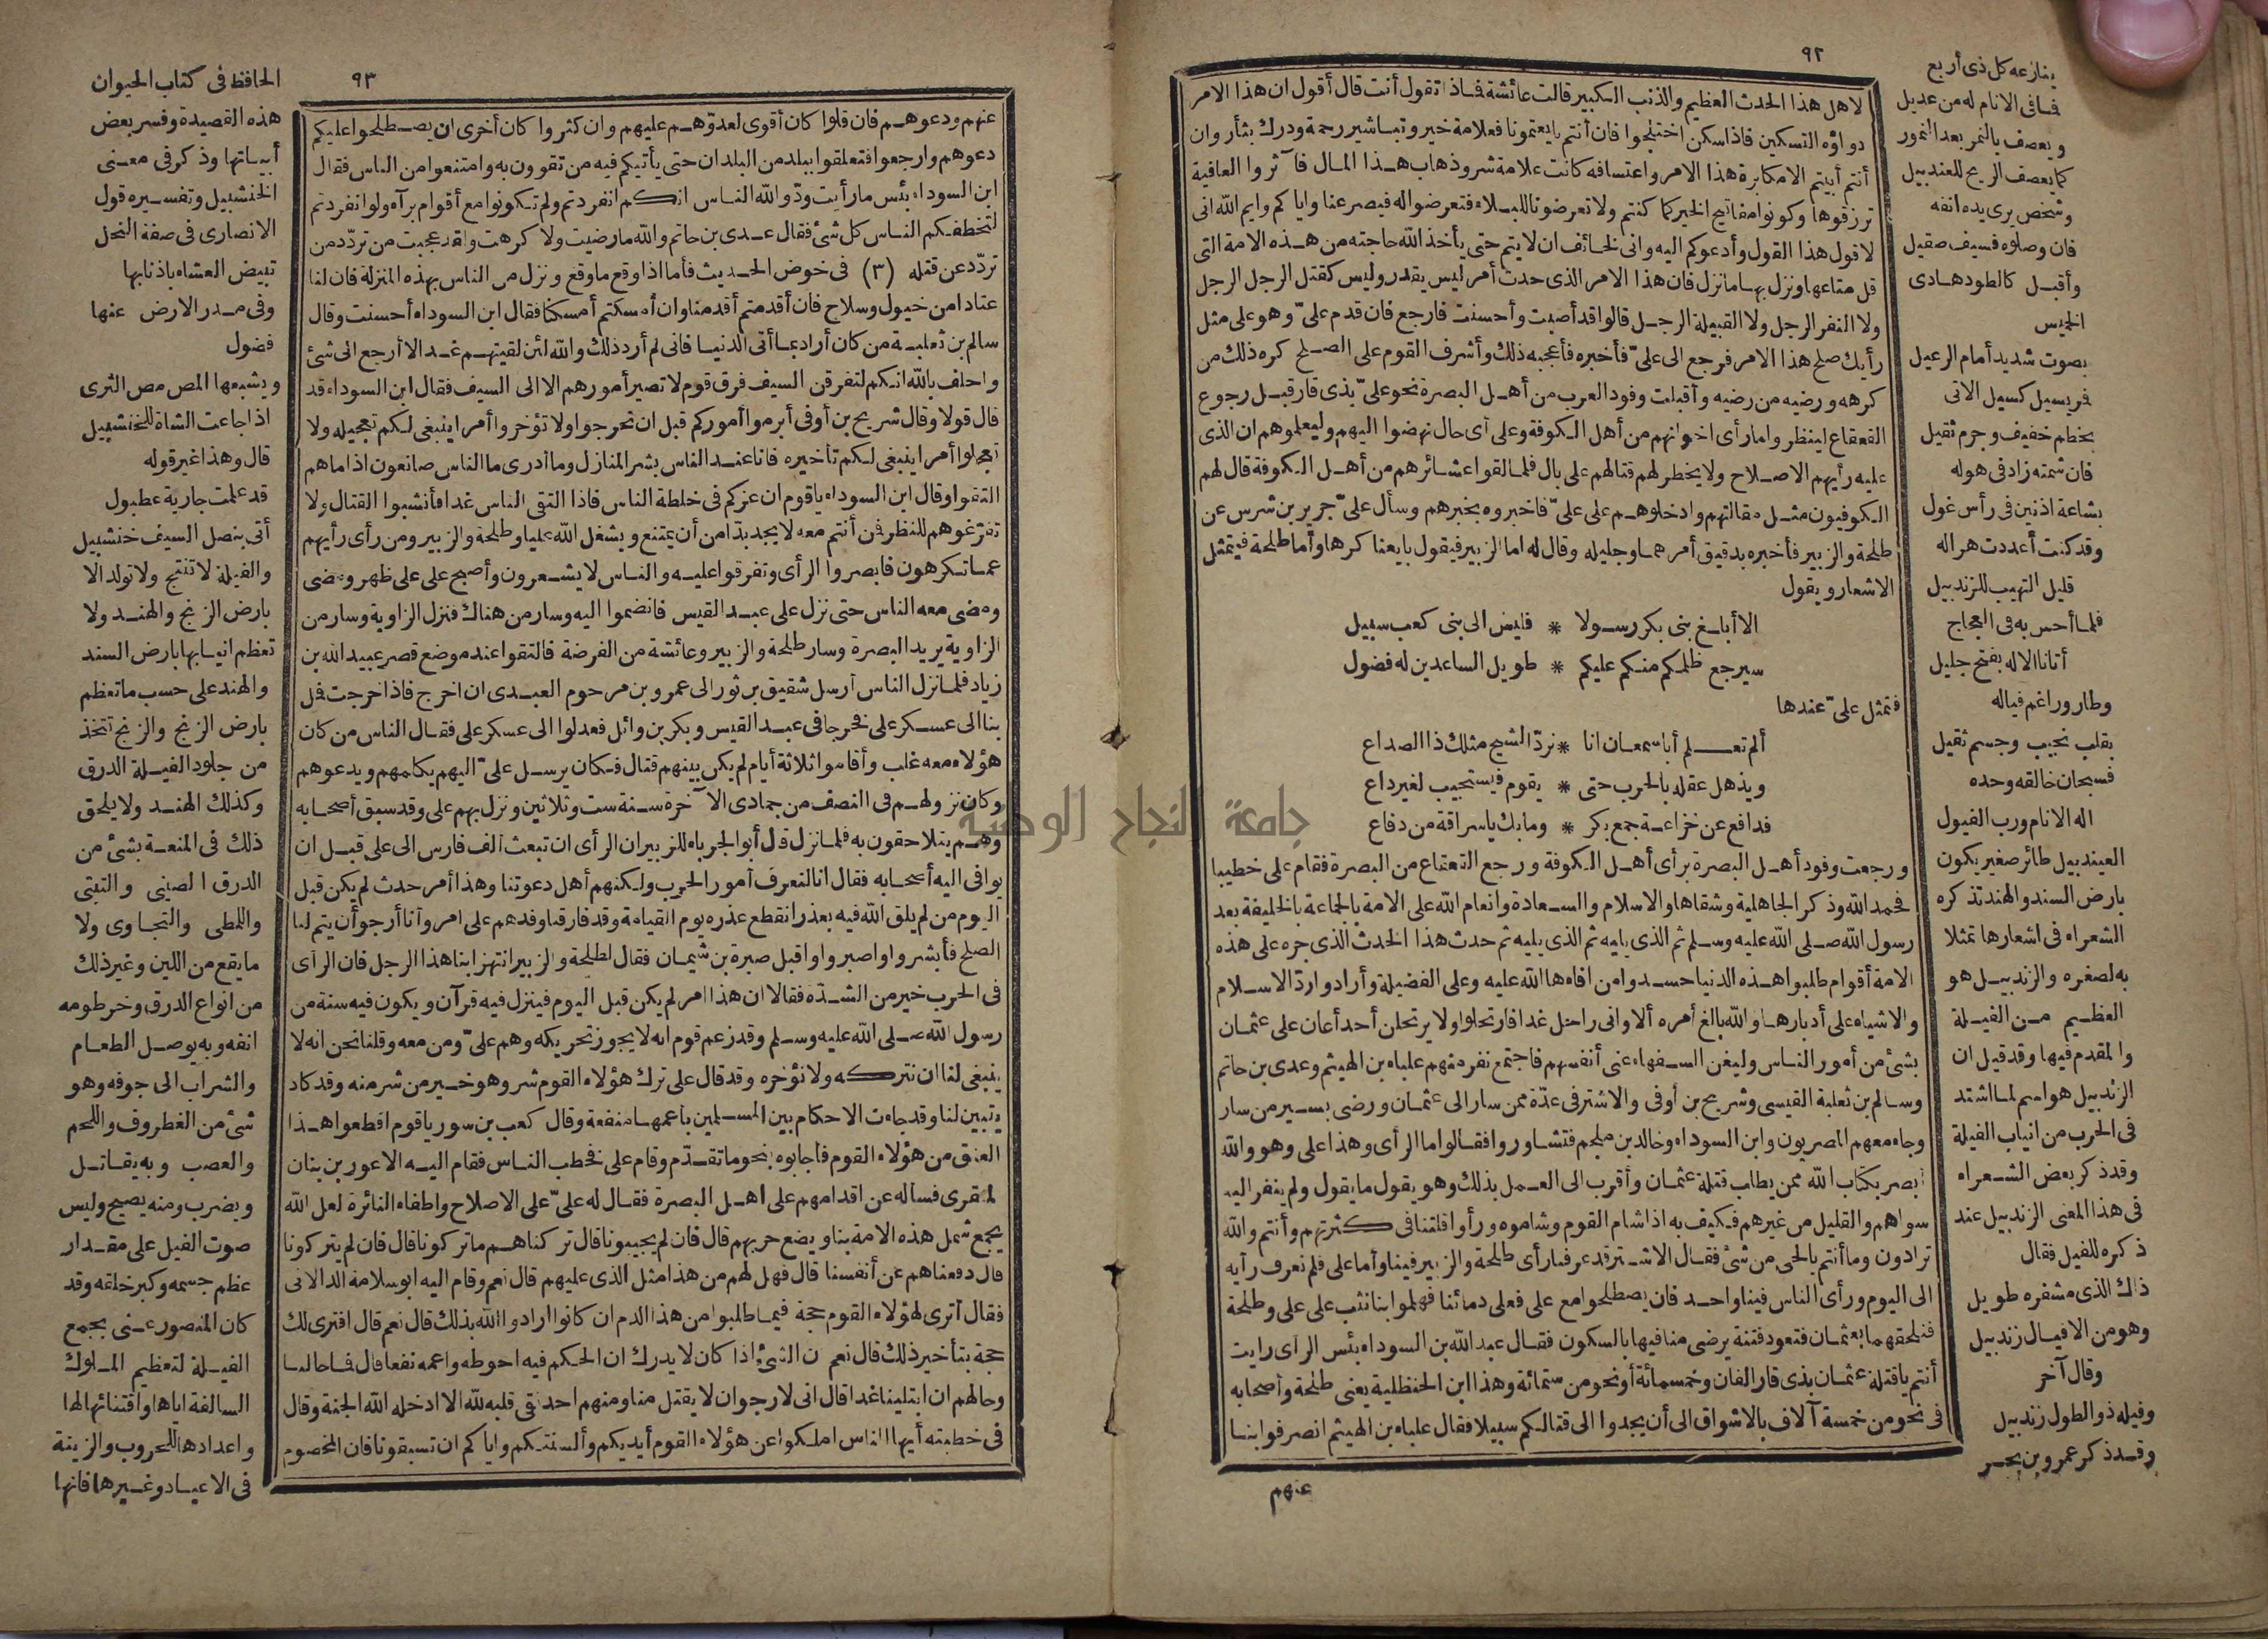 ٩٢
لاهل هذا الحدث العظيم والذنب الكبير قالت عائشة فاذا تقول أنت قال أقول ان هذا الامر
دواؤه التسكين فاذا سكن اختلجوا فان أنتم بايعتمونا فعلامة خير وتباشير رحمة ودرك بثأر وان
أنتم أبيتم الا مكابرة هذا الامر واعتسافه كانت علامة شر وذهاب هذا المال فآثروا العافية
ترزقوها وكونوا مفاتيح الخير كما كنتم ولا تعرضونا للبلاء فتعرضوا له فيصرعنا واياكم وايم الله انى
لاقول هذا القول وأدعوكم اليه وانى لخائف ان لا يتم حتى يأخذ الله حاجته من هذه الامة التى
قل متاعها ونزل بها ما نزل فان هذا الامر الذى حدث أمر ليس يقدر وليس كقتل الرجل الرجل
ولا النفر الرجل ولا القبيلة الرجل قالوا قد أصبت وأحسنت فارجع فان قدم علىّ وهو على مثل
رأيك صلح هذا الامر فرجع الى علىّ فأخبره فأعجبه ذلك وأشرف القوم على الصلح كره ذلك من
كرهه ورضيه من رضيه وأقبلت وفود العرب من أهل البصرة نحو علىّ بذى قار قبل رجوع
القعقاع لينظروا ما رأى اخوانهم من أهل الكوفة وعلى أى حال نهضوا اليهم وليعلموهم ان الذى
عليه رأيهم الاصلاح ولا يخطر لهم قتالهم على بال فلما لقوا عشائرهم من أهل الكوفة قال لهم
الكوفيون مثل مقالتهم وادخلوهم على علىّ فاخبروه بخبرهم وسأل علىّ جرير بن شرس عن
طلحة والزبير فأخبره بدقيق أمرهما وجليله وقال له اما الزبير فيقول بايعنا كرها وأما طلحة فيتمثل
الاشعار ويقول
الا أبلغ بنى بكر رسولا * فليس الى بنى كعب سبيل
سيرجع ظلمكم منكم عليكم * طويل الساعدين له فضول
فتمثل علىّ عندها
ألم تعلم أبا سمعان انا * نردّ الشيخ مثلك ذا الصداع
ويذهل عقله بالحرب حتى * يقوم فيستجيب لغير داع
فدافع عن خزاعة جمع بكر * وما بك يا سراقة من دفاع
ورجعت وفود أهل البصرة برأى أهل الكوفة ورجع القعقاع من البصرة فقام على خطيبا
فحمد الله وذكر الجاهلية وشقاها والاسلام والسعادة وانعام الله على الامة بالجماعة بالخليفة بعد
رسول الله صلى الله عليه وسلم ثم الذى يليه ثم الذى يليه ثم حدث هذا الحدث الذى جره على هذه
الامة أقوام طلبوا هذه الدنيا حسدوا من افاءها الله عليه وعلى الفضيلة وأرادوا ردّ الاسلام
والاشياء على أدبارها والله بالغ أمره ألا وانى راحل غدا فارتحلوا ولا يرتحلن أحد أعان على عثمان
بشئ من أمور الناس وليغن السفهاء عنى أنفسهم فاجتمع نفر منهم علباء بن الهيثم وعدى بن حاتم
وسالم بن ثعلبة القيسى وشريح بن أوفى والاشتر فى عدّة ممن سار الى عثمان ورضى بسير من سار
وجاء معهم المصريون وابن السوداء وخالد بن ملجم فتشاوروا فقالوا ما الرأى وهذا على وهو والله
أبصر بكتاب الله ممن يطلب قتلة عثمان وأقرب الى العمل بذلك وهو يقول ما يقول ولم ينفر اليه
سواهم والقليل من غيرهم فكيف به اذا شام القوم وشاموه ورأوا قلتنا فى كثرتهم وأنتم والله
ترادون وما أنتم بالحى من شئ فقال الاشتر قد عرفنا رأى طلحة والزبير فينا وأما على فلم نعرف رأيه
الى اليوم ورأى الناس فينا واحد فان يصطلحوا مع على فعلى دمائنا فهلموا بنا نثب على على وطلحة
فنلحقهما بعثمان فتعود فتنة يرضى منا فيها بالسكون فقال عبد الله بن السوداء بئس الرأى رايت
أنتم يا قتلة عثمان بذى قار الفان وخمسمائة أو نحو من ستمائة وهذا ابن الحنظلية يعنى طلحة وأصحابه
فى نحو من خمسة آلاف بالاشواق الى أن يجدوا الى قتالكم سبيلا فقال علباء بن الهيثم انصرفوا بنا
عنهم
ينازعه كل ذى أربع
فما فى الانام له من عديل
ويعصف بالنمر بعد النمور
كما يعصف الريح للعندبيل
وشخص يرى يده انفه
فان وصلوه فسيف صقيل
وأقبل كالطود هادى
الخميس
بصوت شديد أمام الرعيل
فريسيل كسيل الاتى
بخطم خفيف وجرم ثقيل
فان شمته زاد فى هوله
بشاعة اذنين فى رأس غول
وقد كنت أعددت هرا له
قليل التهيب للزندبيل
فلما أحس به فى العجاج
أتانا الاله بفتح جليل
وطار وراغم فياله
بقلب نجيب وجسم ثقيل
فسبحان خالقه وحده
اله الانام ورب الفيول
العيندبيل طائر صغير يكون
بارض السند والهند تذكره
الشعراء فى اشعارها تمثلا
به لصغره والزندبيل هو
العظيم من الفيلة
والمقدم فيها وقد قيل ان
الزندبيل هو اسم لما اشتد
فى الحرب من انياب الفيلة
وقد ذكر بعض الشعراء
فى هذا المعنى الزندبيل عند
ذكره للفيل فقال
ذاك الذى مشفره طويل
وهو من الافيال زندبيل
وقال آخر
وفيله ذو الطول زندبيل
وقد ذكر عمرو بن بحر
٩٣
عنهم ودعوهم فان قلوا كان أقوى لعدوّهم عليهم وان كثروا كان أخرى ان يصطلحوا عليكم
دعوهم وارجعوا فتعلقوا ببلد من البلدان حتى يأتيكم فيه من تقوون به وامتنعوا من الناس فقال
ابن السوداء بئس ما رأيت ودّ والله الناس انكم انفردتم ولم تكونوا مع أقوام برآء ولو انفردتم
لتخطفكم الناس كل شئ فقال عدى بن حاتم والله ما رضيت ولا كرهت ولقد عجبت من تردّد من
تردّد عن قتله (٣) فى خوض الحديث فأما اذا وقع ما وقع ونزل من الناس بهذه المنزلة فان لنا
عتادا من خيول وسلاح فان أقدمتم أقدمنا وان أمسكتم أمسكنا فقال ابن السوداء أحسنت وقال
سالم بن ثعلبة من كان أراد بما أتى الدنيا فانى لم أرد ذلك والله لئن لقيتهم غدا لا أرجع الى شئ
واحلف بالله انكم لتفرقن السيف فرق قوم لا تصير أمورهم الا الى السيف فقال ابن السوداء قد
قال قولا وقال شريح بن أوفى أبرموا أموركم قبل ان تخرجوا ولا تؤخروا أمرا ينبغى لكم تعجيله ولا
تعجلوا أمرا ينبغى لكم تأخيره فانا عند الناس بشر المنازل وما أدرى ما الناس صانعون اذا ما هم
التقوا وقال ابن السوداء يا قوم ان عزكم فى خلطة الناس فاذا التقى الناس غدا فأنشبوا القتال ولا
تفرّغوهم للنظر فمن أنتم معه لا يجد بدّا من أن يمتنع ويشغل الله عليا وطلحة والزبير ومن رأى رأيهم
عما تكرهون فابصروا الرأى وتفرقوا عليه والناس لا يشعرون وأصبح على على ظهر ومضى
ومضى معه الناس حتى نزل على عبد القيس فانضموا اليه وسار من هناك فنزل الزاوية وسار من
الزاوية يريد البصرة وسار طلحة والزبير وعائشة من الفرضة فالتقوا عند موضع قصر عبيد الله بن
زياد فلما نزل الناس أرسل شقيق بن ثور الى عمرو بن مرحوم العبدى ان اخرج فاذا خرجت فمل
بنا الى عسكر على فخرجا فى عبد القيس وبكر بن وائل فعدلوا الى عسكر على فقال الناس من كان
هؤلاء معه غلب وأقاموا ثلاثة أيام لم يكن بينهم قتال فكان يرسل علىّ اليهم يكلمهم ويدعوهم
وكان نزولهم فى النصف من جمادى الآخرة سنة ست وثلاثين ونزل بهم على وقد سبق أصحابه
وهم يتلاحقون به فلما نزل قال أبو الجرباء للزبير ان الرأى ان تبعث ألف فارس الى على قبل ان
يوافى اليه أصحابه فقال انا لنعرف أمور الحرب ولكنهم أهل دعوتنا وهذا أمر حدث لم يكن قبل
اليوم من لم يلق الله فيه بعذر انقطع عذره يوم القيامة وقد فارقنا وفدهم على امر وأنا أرجو أن يتم لنا
الصلح فأبشروا واصبروا واقبل صبرة بن شيمان فقال لطلحة والزبير انتهزا بنا هذا الرجل فان الرأى
فى الحرب خير من الشدّة فقالا ان هذا امر لم يكن قبل اليوم فينزل فيه قرآن ويكون فيه سنة من
رسول الله صلى الله عليه وسلم وقد زعم قوم انه لا يجوز تحريكه وهم علىّ ومن معه وقلنا نحن انه لا
ينبغى لنا ان نتركه ولا نؤخره وقد قال على ترك هؤلاء القوم شر وهو خير من شر منه وقد كاد
يتبين لنا وقد جاءت الاحكام بين المسلمين باعمها منفعة وقال كعب بن سور يا قوم اقطعوا هذا
العنق من هؤلاء القوم فأجابوه بنحو ما تقدّم وقام على فخطب الناس فقام اليه الاعور بن بنان
المنقرى فسأله عن اقدامهم على اهل البصرة فقال له علىّ على الاصلاح واطفاء النائرة لعل الله
يجمع شمل هذه الامة بنا ويضع حربهم قال فان لم يجيبونا قال تركناهم ما تركونا قال فان لم يتركونا
قال دفعناهم عن أنفسنا قال فهل لهم من هذا مثل الذى عليهم قال نعم وقام اليه ابو سلامة الدالانى
فقال أترى لهؤلاء القوم حجة فيما طلبوا من هذا الدم ان كانوا ارادوا الله بذلك قال نعم قال افترى لك
حجة بتأخير ذلك قال نعم ان الشئ اذا كان لا يدرك ان الحكم فيه احوطه واعمه نفعا قال فما حالنا
وحالهم ان ابتلينا غدا قال انى لارجو ان لا يقتل منا ومنهم احد نقى قلبه لله الا ادخله الله الجنة وقال
فى خطبته أيها الناس املكوا عن هؤلاء القوم أيديكم وألسنتكم واياكم ان تسبقونا فان المخصوم
الحافظ فى كتاب الحيوان
هذه القصيدة وفسر بعض
أبياتها وذكر فى معنى
الخنشبيل وتفسيره قول
الانصارى فى صفة النحل
تبيض العشاء باذنابها
وفى مدر الارض عنها
فضول
ويشبعها المص مص الثرى
اذا جاعت الشاة للخنشبيل
قال وهذا غير قوله
قد علمت جارية عطبول
أنى بنصل السيف خنشبيل
والفيلة لا تنتج ولا تولد الا
بارض الزنج والهند ولا
تعظم انيابها بارض السند
والهند على حسب ما تعظم
بارض الزنج والزنج تتخذ
من جلود الفيلة الدرق
وكذلك الهند ولا يلحق
ذلك فى المنعة بشئ من
الدرق الصينى والتبتى
واللمطى والتجاوى ولا
ما يقع من اللين وغير ذلك
من انواع الدرق وخرطومه
انفه وبه يوصل الطعام
والشراب الى جوفه وهو
شئ من الغطروف واللحم
والعصب وبه يقاتل
ويضرب ومنه يصيح وليس
صوت الفيل على مقدار
عظم جسمه وكبر خلقه وقد
كان المنصور عنى بجمع
الفيلة لتعظيم الملوك
السالفة اياها واقتنائها لها
واعدادها للحروب والزينة
فى الاعياد وغيرها فانها
جامعة النجاح الوطنية